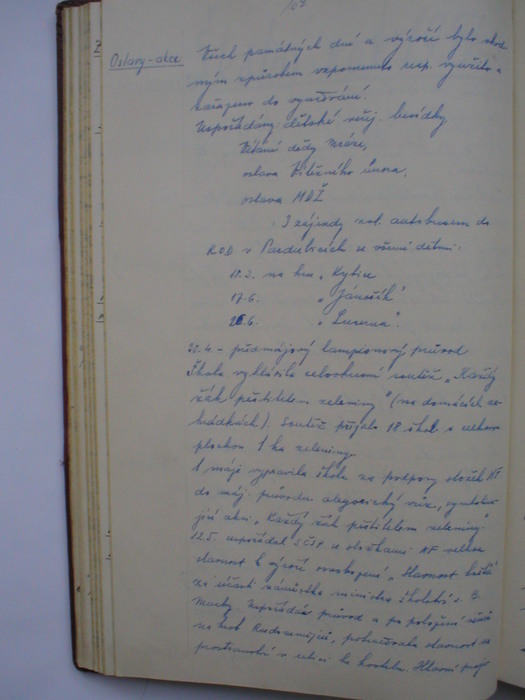 Oslavy-akce
Všech památných dní a výročí bylo vhod-
ným způsobem vzpomenuto resp. využito a
zařazeno do vyučování.
Uspořádány dětské veřej. besídky
Vítání dědy Mráze,
oslava Vítězného února,
oslava MDŽ
3 zájezdy zvl. autobusem do
ROD v Pardubicích se všemi dětmi:
11.2. na hru „Kytice
17.6. „Jánošík"
26.6. „Lucerna".
25.4. - předmájový lampionový průvod
Škola vyhlásila celookresní soutěž „Každý
žák pěstitelem zeleniny" (na domácích za-
hrádkách). Soutěž přijalo 18 škol s celkovou
plochou 1 ha zeleniny.
1 máje vypravila škola za podpory složek NF
do máj. průvodu alegorický vůz, symbolizu-
jící akci „Každý žák pěstitelem zeleniny.
12.5. uspořádal s složkami NF velkou
slavnost k výročí osvobození „Slavnost
za účasti náměstka ministra školství s.
Macky. Uspořádán průvod a po položení věnců
na hrob Rudoarmějců, pokračovala slavnost na
prostranství v ulici ke kostelu. Hlavní proj